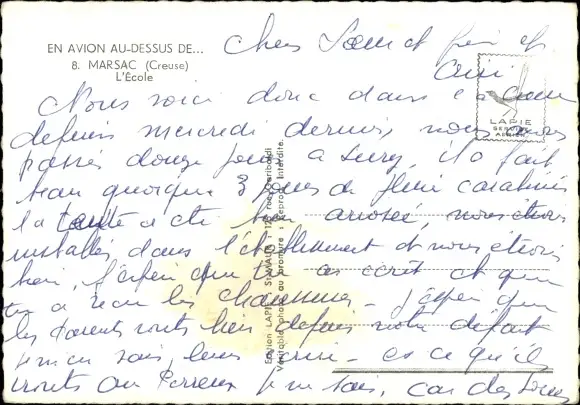 EN AVION AU-DESSUS DE...
8. MARSAC (Creuse)
L'École
Chers Sœur et frère et
Ami
Nous voici donc dans la Creuse
depuis mercredi dernier, nous avons
passés douze jours a Sury, il a fait
beau quoique 3 jours de pluie
la tente a été bien arrosée, nous étions
installés dans l'établissement et nous étions
bien, j'espère que tu as écrit et que
tu a reçu les chaussures - j'espère que
les Parents vont bien depuis notre départ
je ne sais, leur - es ce qu'ils
iront au Perreux je ne sais, car des
LAPIE
SERVICE
AÉRIEN
Edition LAPIE - St-MAUR -
Véritable photo au bromure : Reprod. interdite.